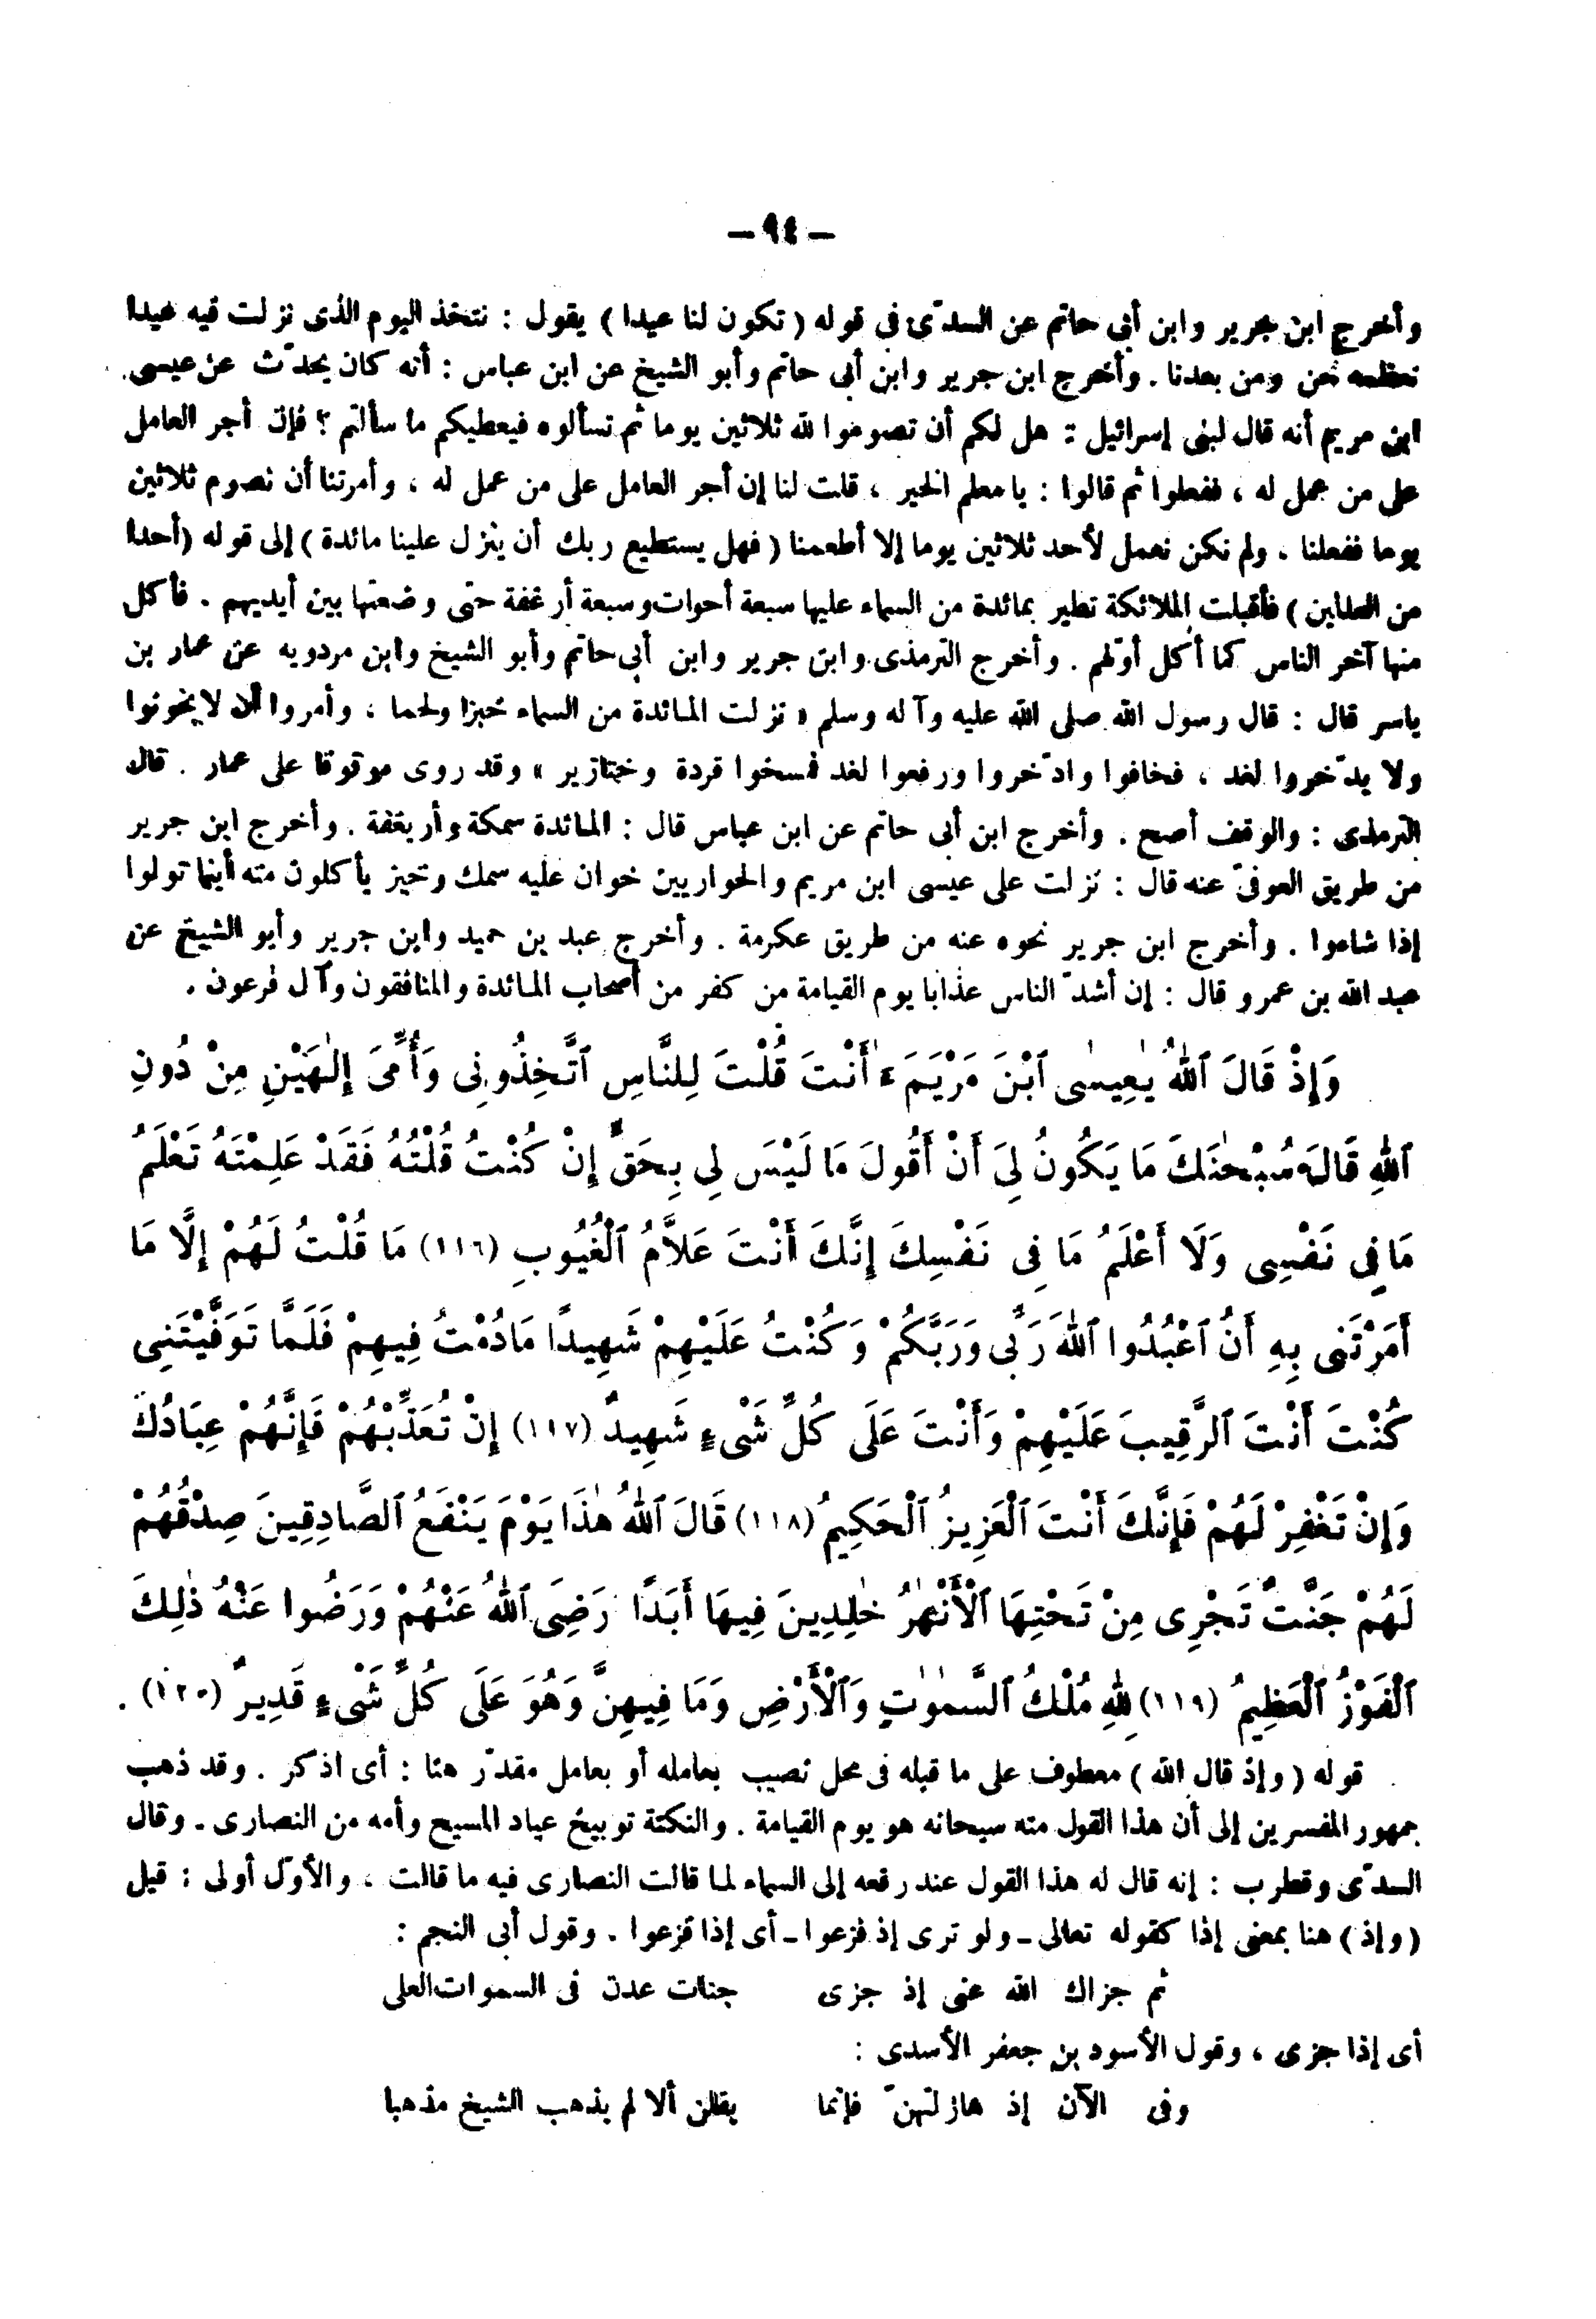 — ٩٤ —
وأخرج ابن جرير وابن أبى حاتم عن السدّى فى قوله ( تكون لنا عيدا ) يقول : نتخذ اليوم الذى نزلت فيه عيدا
نعظمه نحن ومن بعدنا . وأخرج ابن جرير وابن أبى حاتم وأبو الشيخ عن ابن عباس : أنه كان يحدّث عن عيسى
ابن مريم أنه قال لبنى إسرائيل : هل لكم أن تصوموا لله ثلاثين يوما ثم تسألوه فيعطيكم ما سألتم ؟ فإن أجر العامل
على من عمل له ، ففعلوا ثم قالوا : يا معلم الخير ، قلت لنا إن أجر العامل على من عمل له ، وأمرتنا أن نصوم ثلاثين
يوما ففعلنا ، ولم نكن نعمل لأحد ثلاثين يوما إلا أطعمنا ( فهل يستطيع ربك أن ينزل علينا مائدة ) إلى قوله ( أحدا
من العالمين ) فأقبلت الملائكة تطير بمائدة من السماء عليها سبعة أحوات وسبعة أرغفة حتى وضعتها بين أيديهم . فأكل
منها آخر الناس كما أكل أوّلهم . وأخرج الترمذى وابن جرير وابن أبى حاتم وأبو الشيخ وابن مردويه عن عمار بن
ياسر قال : قال رسول الله صلى الله عليه وآله وسلم « نزلت المائدة من السماء خبزا ولحما ، وأمروا أن لا يخونوا
ولا يدّخروا لغد ، فخافوا وادّخروا ورفعوا لغد فمسخوا قردة وخنازير » وقد روى موقوفا على عمار . قال
الترمذى : والوقف أصح . وأخرج ابن أبى حاتم عن ابن عباس قال : المائدة سمكة وأريغفة . وأخرج ابن جرير
من طريق العوفىّ عنه قال : نزلت على عيسى ابن مريم والحواريين خوان عليه سمك وخبز يأكلون منه أينما تولوا
إذا شاءوا . وأخرج ابن جرير نحوه عنه من طريق عكرمة . وأخرج عبد بن حميد وابن جرير وأبو الشيخ عن
عبد الله بن عمرو قال : إن أشدّ الناس عذابا يوم القيامة من كفر من أصحاب المائدة والمنافقون وآل فرعون .
وَإِذْ قَالَ ٱللهُ يٰعِيسٰى ٱبْنَ مَرْيَمَ ءَأَنْتَ قُلْتَ لِلنَّاسِ ٱتَّخِذُونِى وَأُمِّىَ إِلٰهَيْنِ مِنْ دُونِ
ٱللهِ قَالَ سُبْحٰنَكَ مَا يَكُونُ لِىَ أَنْ أَقُولَ مَا لَيْسَ لِى بِحَقٍّ إِنْ كُنْتُ قُلْتُهُ فَقَدْ عَلِمْتَهُ تَعْلَمُ
مَا فِى نَفْسِى وَلَا أَعْلَمُ مَا فِى نَفْسِكَ إِنَّكَ أَنْتَ عَلَّامُ ٱلْغُيُوبِ (١١٦) مَا قُلْتُ لَهُمْ إِلَّا مَا
أَمَرْتَنِى بِهِ أَنِ ٱعْبُدُوا ٱللهَ رَبِّى وَرَبَّكُمْ وَكُنْتُ عَلَيْهِمْ شَهِيدًا مَادُمْتُ فِيهِمْ فَلَمَّا تَوَفَّيْتَنِى
كُنْتَ أَنْتَ ٱلرَّقِيبَ عَلَيْهِمْ وَأَنْتَ عَلَى كُلِّ شَىْءٍ شَهِيدٌ (١١٧) إِنْ تُعَذِّبْهُمْ فَإِنَّهُمْ عِبَادُكَ
وَإِنْ تَغْفِرْ لَهُمْ فَإِنَّكَ أَنْتَ ٱلْعَزِيزُ ٱلْحَكِيمُ (١١٨) قَالَ ٱللهُ هٰذَا يَوْمَ يَنْفَعُ ٱلصَّادِقِينَ صِدْقُهُمْ
لَهُمْ جَنّٰتٌ تَجْرِى مِنْ تَحْتِهَا ٱلْأَنْهٰرُ خٰلِدِينَ فِيهَا أَبَدًا رَضِىَ ٱللهُ عَنْهُمْ وَرَضُوا عَنْهُ ذٰلِكَ
ٱلْفَوْزُ ٱلْعَظِيمُ (١١٩) لِلهِ مُلْكُ ٱلسَّمٰوٰتِ وَٱلْأَرْضِ وَمَا فِيهِنَّ وَهُوَ عَلَى كُلِّ شَىْءٍ قَدِيرٌ (١٢٠) .
قوله ( وإذ قال الله ) معطوف على ما قبله فى محل نصب بعامله أو بعامل مقدّر هنا : أى اذكر . وقد ذهب
جمهور المفسرين إلى أن هذا القول منه سبحانه هو يوم القيامة . والنكتة توبيخ عباد المسيح وأمه من النصارى . وقال
السدّى وقطرب : إنه قال له هذا القول عند رفعه إلى السماء لما قالت النصارى فيه ما قالت ، والأوّل أولى : قيل
( وإذ ) هنا بمعنى إذا كقوله تعالى ـ ولو ترى إذ فزعوا ـ أى إذا فزعوا . وقول أبى النجم :
ثم جزاك الله عنى إذ جزى جنات عدن فى السموات العلى
أى إذا جزى ، وقول الأسود بن جعفر الأسدى :
وفى الآن إذ هازلتهنّ فإنما يقلن ألا لم يذهب الشيخ مذهبا